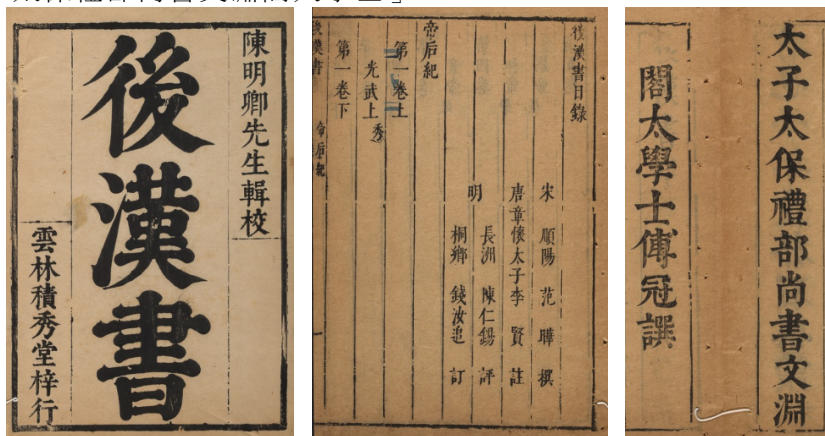 陳明卿先生輯校
後漢書
雲林積秀堂梓行
後漢書目錄
宋 順陽 范曄 撰
唐章懷太子李賢 註
明
長洲 陳仁錫 評
桐鄉 錢汝追 訂
帝后紀
第一卷上
光武上 秀
第一卷下
太子太保禮部尚書文淵
閣太學士傅冠譔